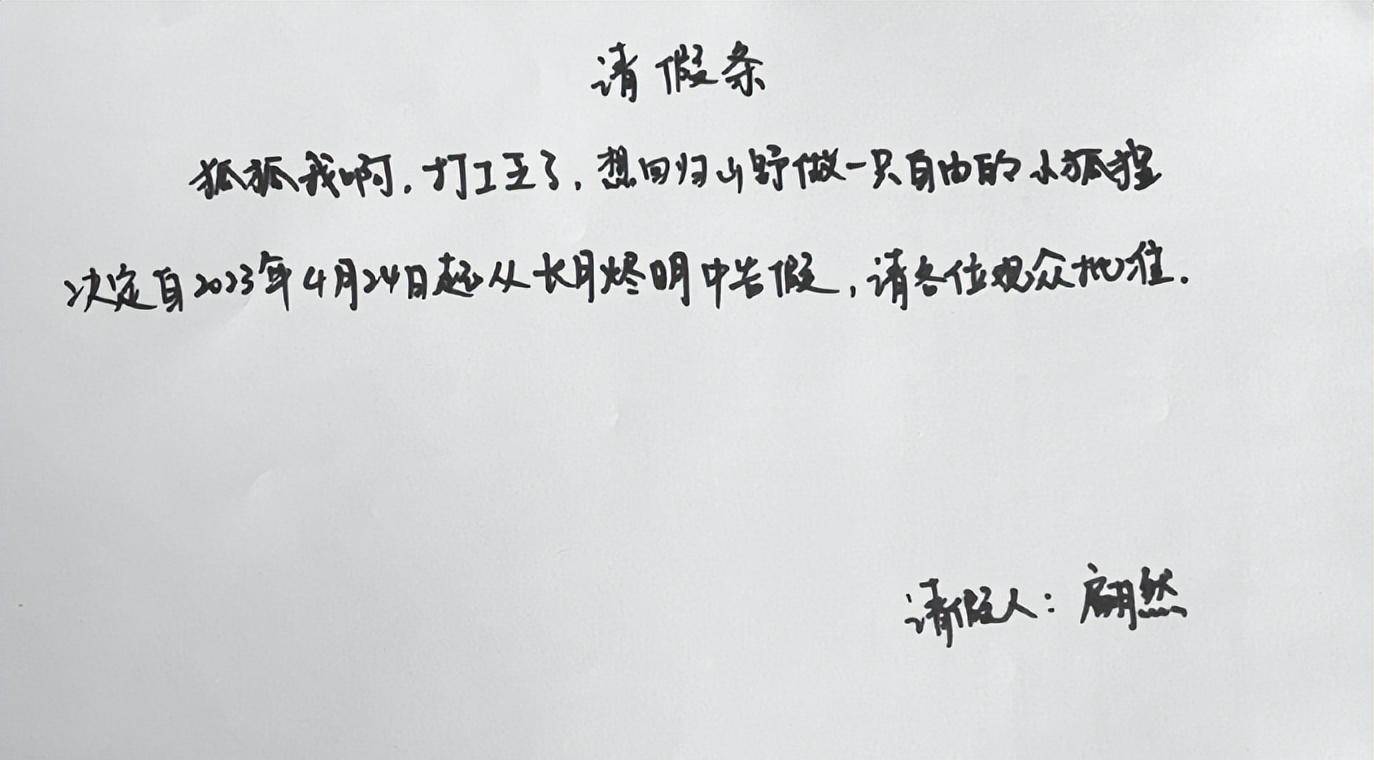 请假条
狐狐我啊,打工王了,想回归山野做一只自由的小狐狸
决定自2023年4月24日起从长月烬明中告假,请各位观众批准.
请假人:翩然